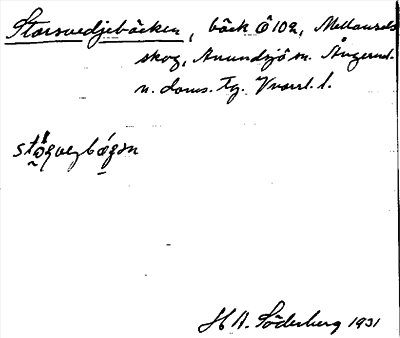 Storsvedjebäcken, bäck Ö 102, Mellansels
skog, Anundsjö sn. Ångerml.
n. doms. tg. Vnorrl. l.
H A. Söderberg 1931